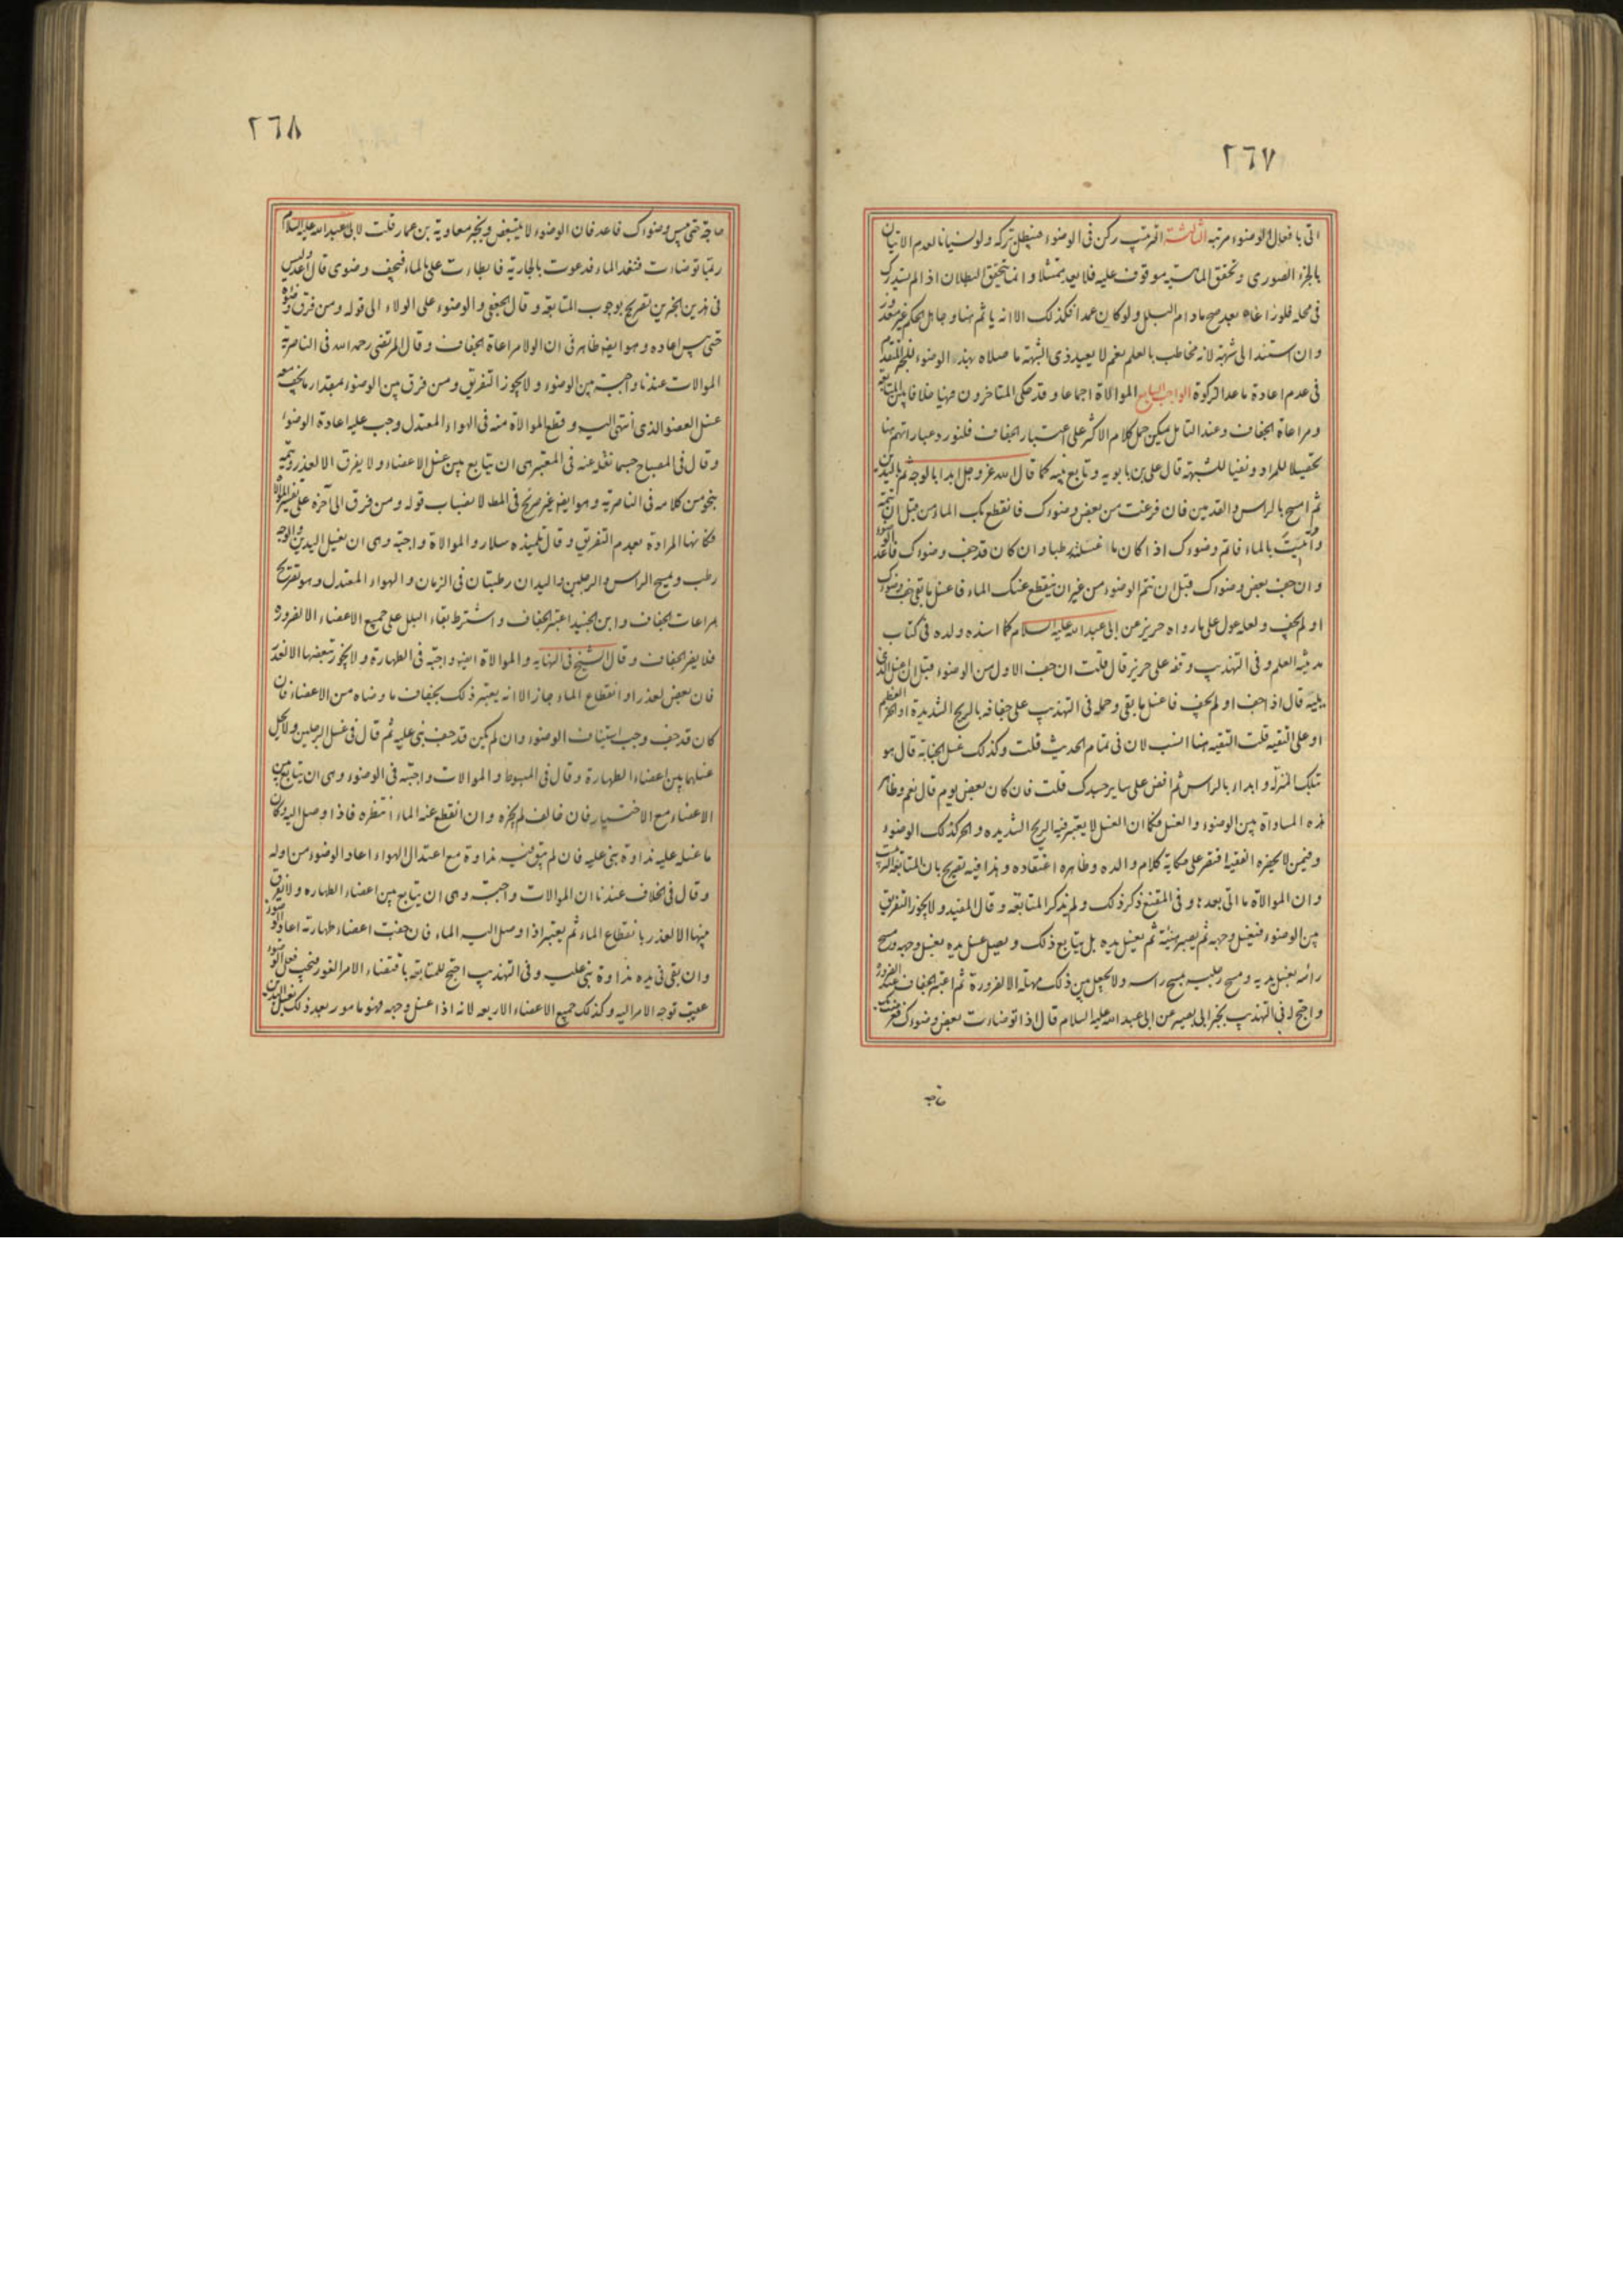 ٢٦٧
اتى بافعال الوضوء مرتبه الثالثة الترتيب ركن فى الوضوء فيبطل بتركه ولو نسيانا لعدم الاتيان
بالجزء الصورى وتحقق الماهية موقوف عليه فلا يعد ممتثلا وانما يتحقق البطلان اذا لم يستدرك
فى محله فلو راعاه بعد صح مادام البلل ولو كان عمدا فكذلك الا انه ياثم هنا وجاهل الحكم غير معذور
وان استند الى شبهة لانه مخاطب بالعلم نعم لا يعيد ذى الشبهة ما صلاه بهذه الوضوء للخبر المتقدم
فى عدم اعادة ما عدا الزكوة الواجب السابع الموالاة اجماعا وقد حكى المتاخرون فيها خلافا بين المتابعة
ومراعاة الجفاف وعند التامل يمكن حمل كلام الاكثر على اعتبار الجفاف فلنورد عباراتهم هنا
تحصيلا للمراد ونفيا للشبهة قال على بن بابويه وتابع بينه كما قال الله عز وجل ابدا بالوجه ثم باليدين
ثم امسح بالراس والقدمين فان فرغت من بعض وضوءك فانقطع بك الماء من قبل ان تتمه
واتيت بالماء فاتم وضوءك اذا كان ما غسلته رطبا وان كان قد جف وضوءك فاعد الوضوء
وان جف بعض وضوءك قبل ان تتم الوضوء من غير ان ينقطع عنك الماء فاغسل ما بقى جف وضوءك
او لم يجف ولعله عول على ما رواه حريز عن ابى عبد الله عليه السلام كما اسنده ولده فى كتاب
مدينة العلم وفى التهذيب وقفه على حريز قال قلت ان جف الاول من الوضوء قبل ان اغسل الذى
يليه قال اذا جف او لم يجف فاغسل ما بقى وحمله فى التهذيب على جفافه بالريح الشديدة او الحر العظيم
او على التقيه قلت التقيه هنا انسب لان فى تمام الحديث قلت وكذلك غسل الجنابة قال هو
بتلك المنزلة وابدا بالراس ثم افض على ساير جسدك قلت فان كان بعض يوم قال نعم وظاهر
هذه المساواة بين الوضوء والغسل فكما ان الغسل لا يعتبر فيه الريح الشديده والحر كذلك الوضوء
وفيمن لا يحضره الفقيه اقتصر على حكاية كلام والده وظاهره اعتقاده وهذا فيه تصريح بان المتابعة الترتيب
وان الموالاة ما اتى بعده وفى المقنع ذكر ذلك ولم يذكر المتابعة وقال المفيد ولا يجوز التفريق
بين الوضوء فيغسل وجهه ثم يصبر هنيئة ثم يغسل يده بل يتابع ذلك ويصل غسل يده بغسل وجهه ومسح
رائسه بغسل يديه ومسح رجليه بمسح راسه ولا يجعل بين ذلك مهلة الا لضرورة ثم اعتبر الجفاف عند الضرورة
واحتج له فى التهذيب بخبر ابى بصير عن ابى عبد الله عليه السلام قال اذا توضاءت بعض وضوءك فعرضت لك
حاجة
٢٦٨
حاجة حتى يبس وضوءك فاعد فان الوضوء لا يتبعض وبخبر معاوية بن عمار قلت لابى عبد الله عليه السلام
ربما توضاءت فنفد الماء فدعوت بالجارية فابطاءت على بالماء فيجف وضوى قال اعد وليس
فى هذين الخبرين تصريح بوجوب المتابعة وقال الجعفى والوضوء على الولاء الى قوله ومن فرق وضوءه
حتى يبس اعاده وهو ايضا ظاهر فى ان الولا مراعاة الجفاف وقال المرتضى رحمه الله فى الناصرية
الموالات عندنا واجبة بين الوضوء ولا يجوز التفريق ومن فرق بين الوضوء بمقدار ما يجف معه
غسل العضو الذى انتهى اليه وقطع الموالاة منه فى الهواء المعتدل وجب عليه اعادة الوضوء
وقال فى المصباح حسبما نقله عنه فى المعتبر هى ان يتابع بين غسل الاعضاء ولا يفرق الا لعذر وتتمه
بنحو من كلامه فى الناصرية وهو ايضا غير صريح فى المط لانصباب قوله ومن فرق الى آخره على تفسير الموالاة
فكانها المرادة بعدم التفريق وقال تلميذه سلار والموالاة واجبة وهى ان يغسل اليدين والوجه
رطب ويمسح الراس والرجلين واليدان رطبتان فى الزمان والهواء المعتدل وهو تصريح
بمراعات الجفاف وابن الجنيد اعتبر الجفاف واشترط بقاء البلل على جميع الاعضاء الا لضرورة
فلا يضر الجفاف وقال الشيخ فى النهاية والموالاة ايضا واجبة فى الطهارة ولا يجوز تبعيضها الا لعذر
فان بعض لعذر او انقطاع الماء جاز الا انه يعتبر ذلك بجفاف ما وضاه من الاعضاء فان
كان قد جف وجب استيناف الوضوء وان لم يكن قد جف بنى عليه ثم قال فى غسل الرجلين ولا يجعل
غسلهما بين اعضاء الطهارة وقال فى المبسوط والموالات واجبة فى الوضوء وهى ان يتابع بين
الاعضاء مع الاختيار فان خالف لم يجزه وان انقطع عنه الماء انتظره فاذا وصل اليه وكان
ما غسله عليه نداوة بنى عليه فان لم يبق فيه نداوة مع اعتدال الهواء اعاد الوضوء من اوله
وقال فى الخلاف عندنا ان الموالات واجبة وهى ان يتابع بين اعضاء الطهاره ولا يفرق
بينها الا لعذر بانقطاع الماء ثم يعتبر اذا وصل اليه الماء فان جفت اعضاء طهارته اعاد الوضوء
وان بقى فى يده نداوة بنى عليه وفى التهذيب احتج للمتابعة باقتضاء الامر الفور فيجب فعل الوضوء
عقيب توجه الامر اليه وكذلك جميع الاعضاء الاربعه لانه اذا غسل وجهه فهو مامور بعد ذلك بغسل اليدين